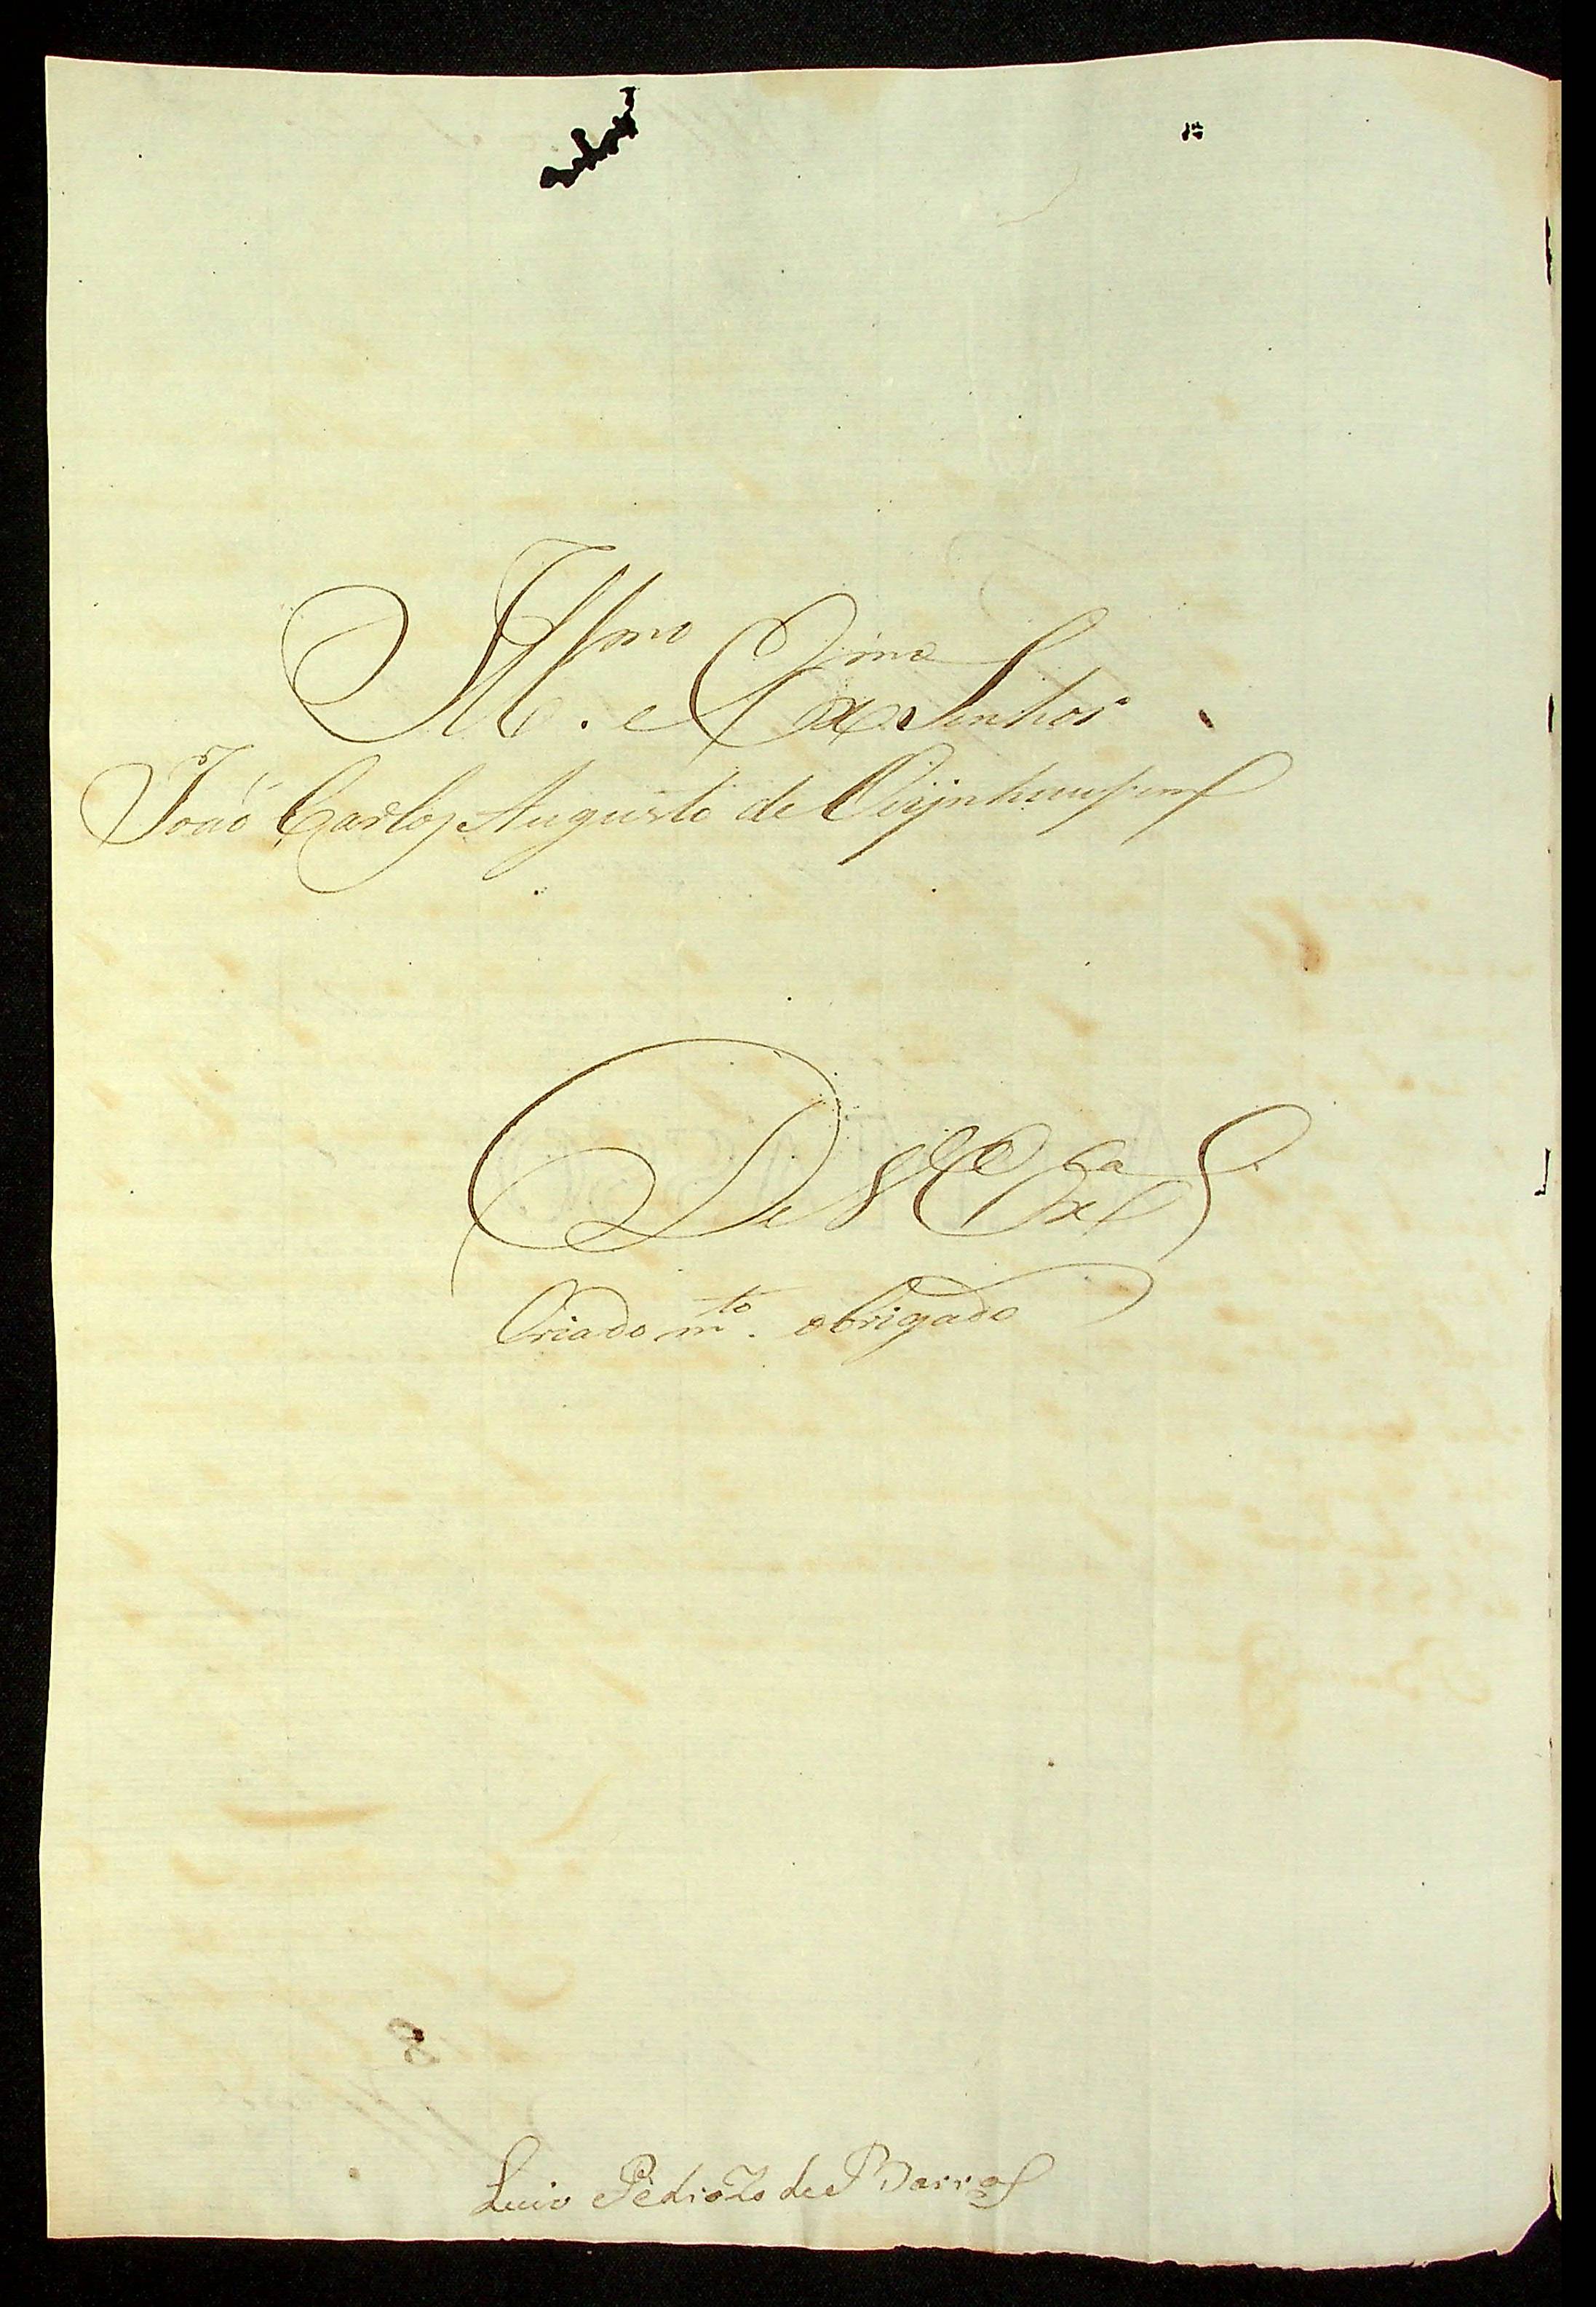 Ill.mo e Ex.mo Senhor
João Carlos Augusto de Oeijnhausens
De V Ex.ca
Criado m.to obrigado
Luis Pedrozo de Barros